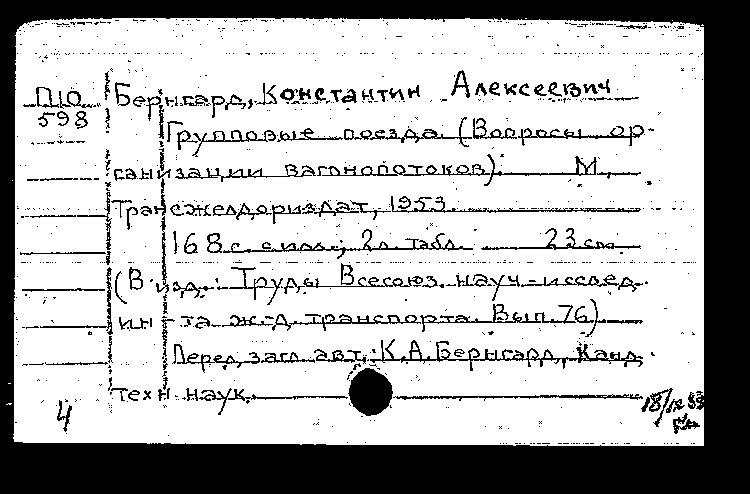 П10
598
Бернгард, Константин Алексеевич
Групповые поезда. (Вопросы ор-
ганизации вагонопотоков). М.,
Трансжелдориздат, 1953.
168 с. с илл.; 2 л. табл. 23 см.
(В изд.: Труды Всесоюз. науч.-исслед.
ин-та ж.-д. транспорта. Вып. 76).
Перед загл. авт.: К.А. Бернгард, канд.
техн. наук.
4
18/12 53